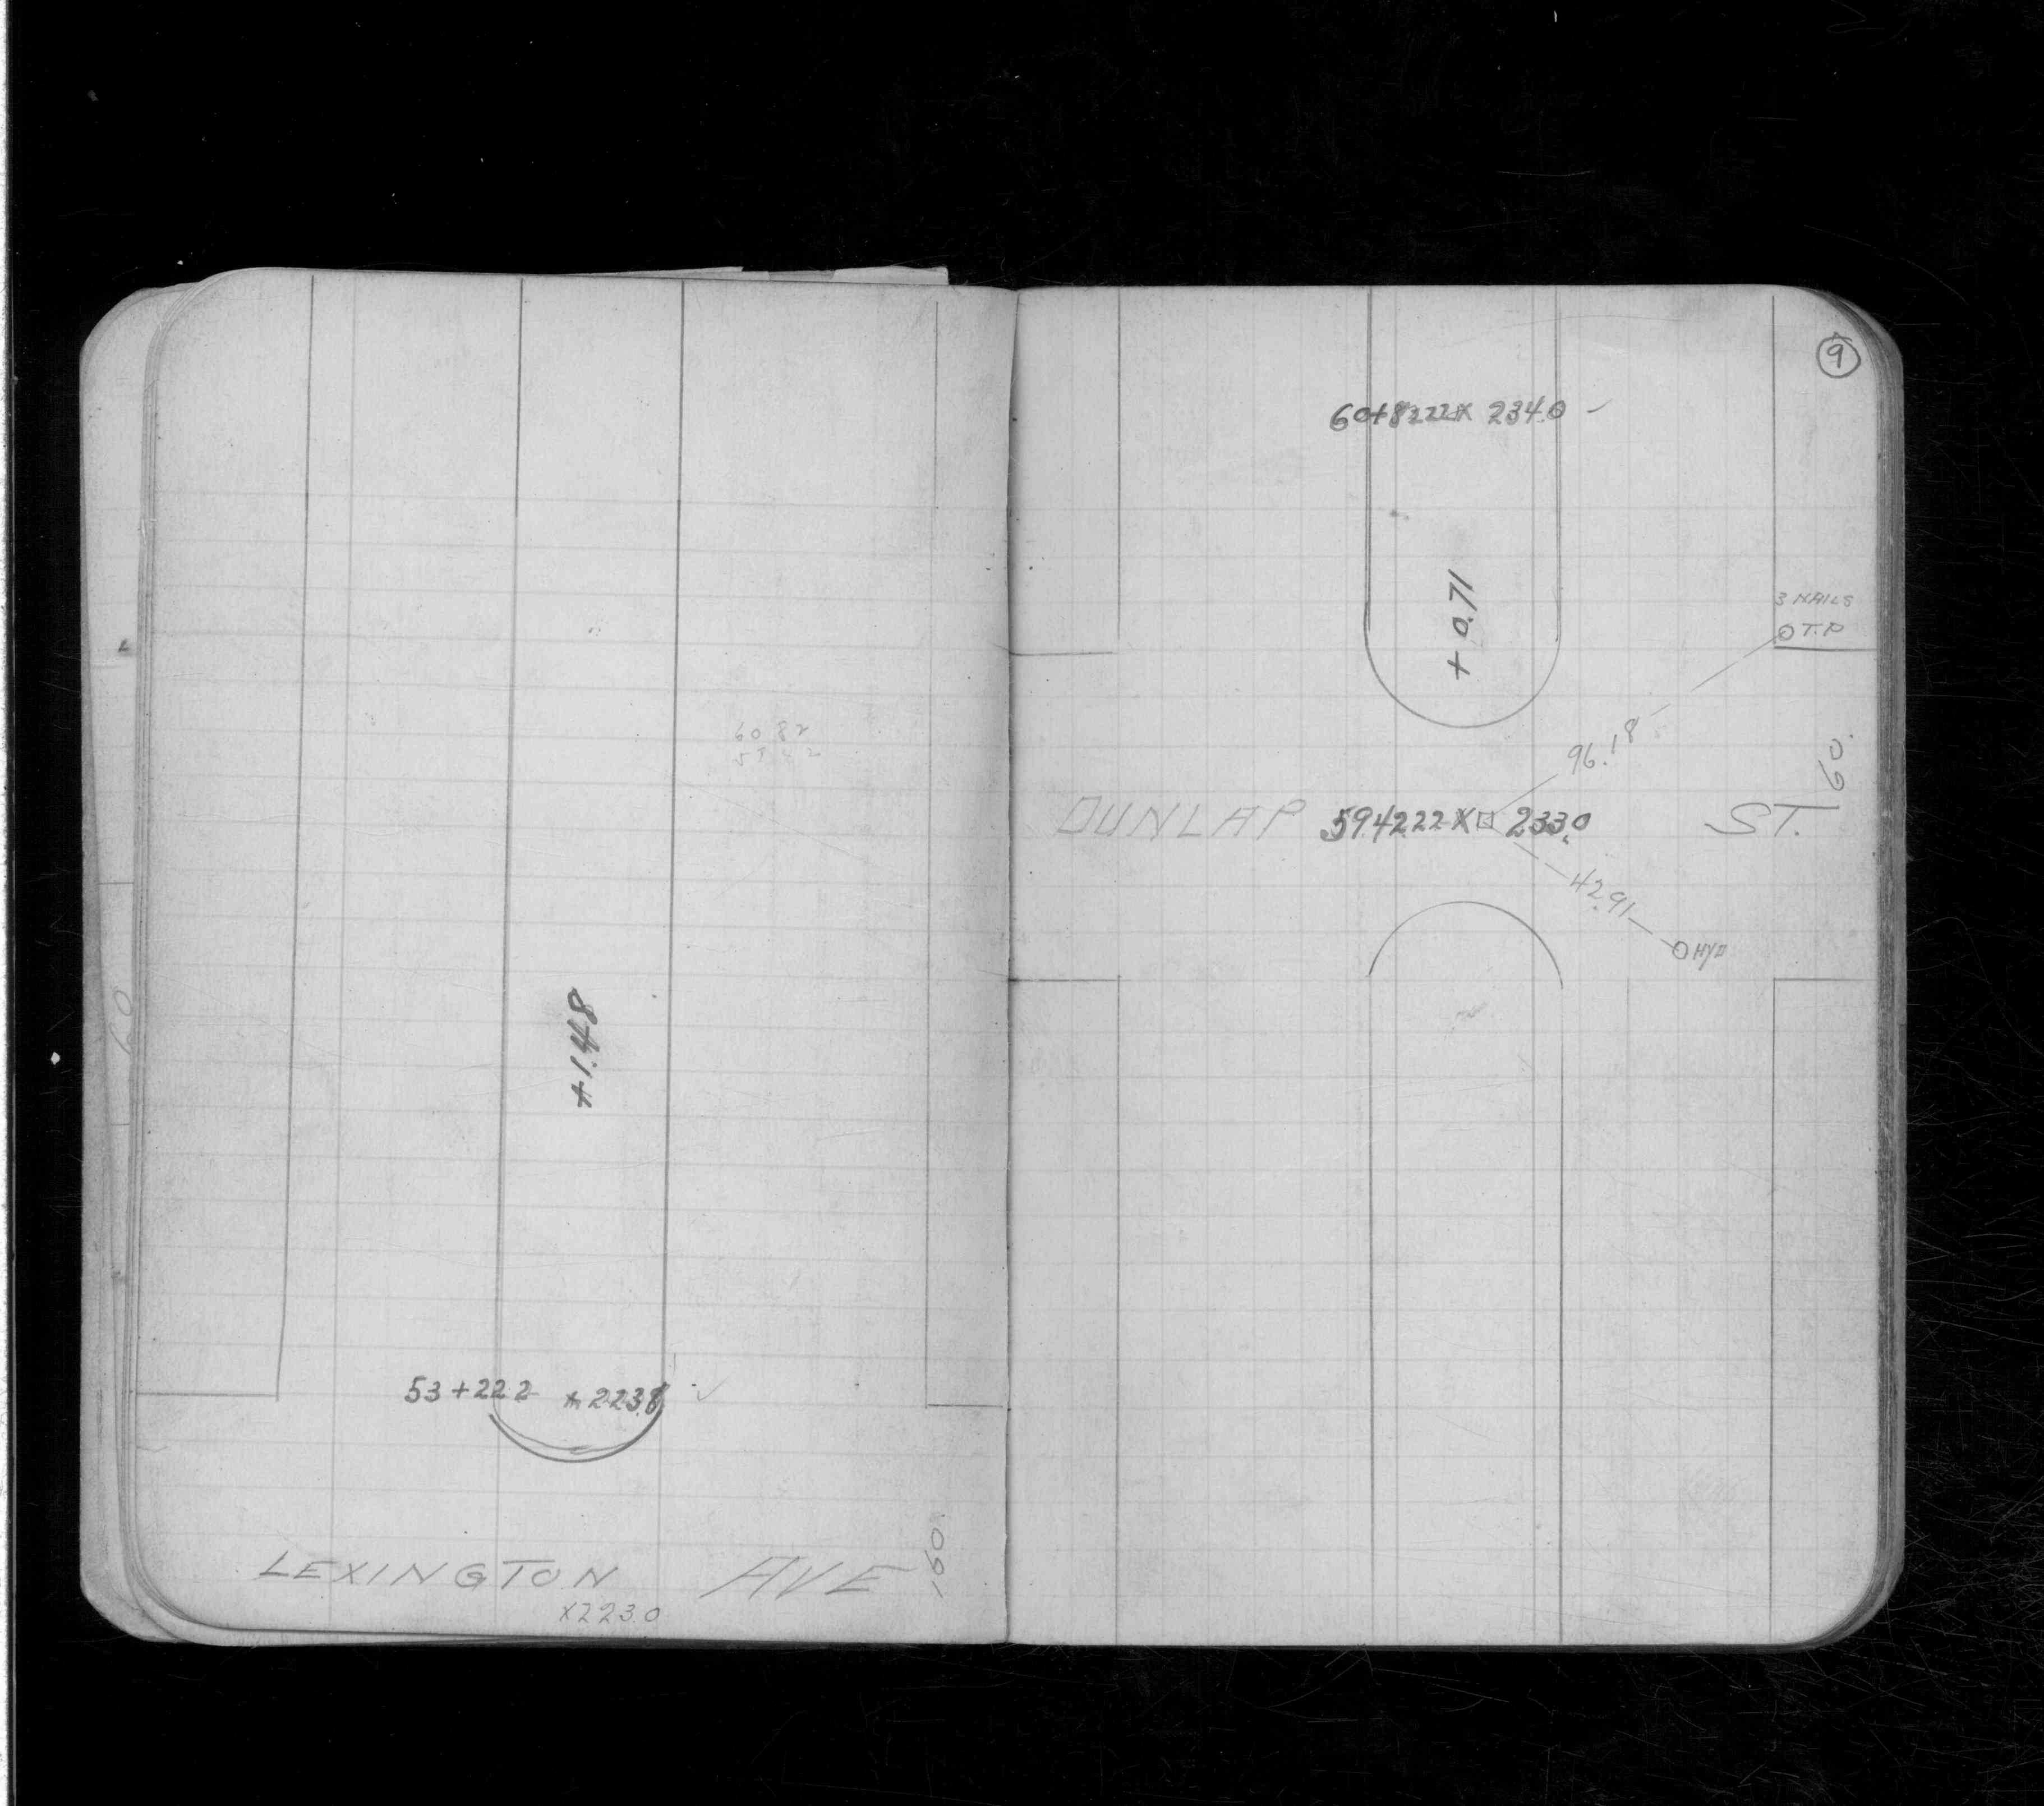 60 82
+1.48
53+22.2 x 223.8
LEXINGTON AVE 150'
x223.0
60
9
60+82.22 x 234.0
+0.71
3 NAILS
O T.P.
96.18
60'
DUNLAP 59+22.2 x 233.0 ST.
42.91
O HYD